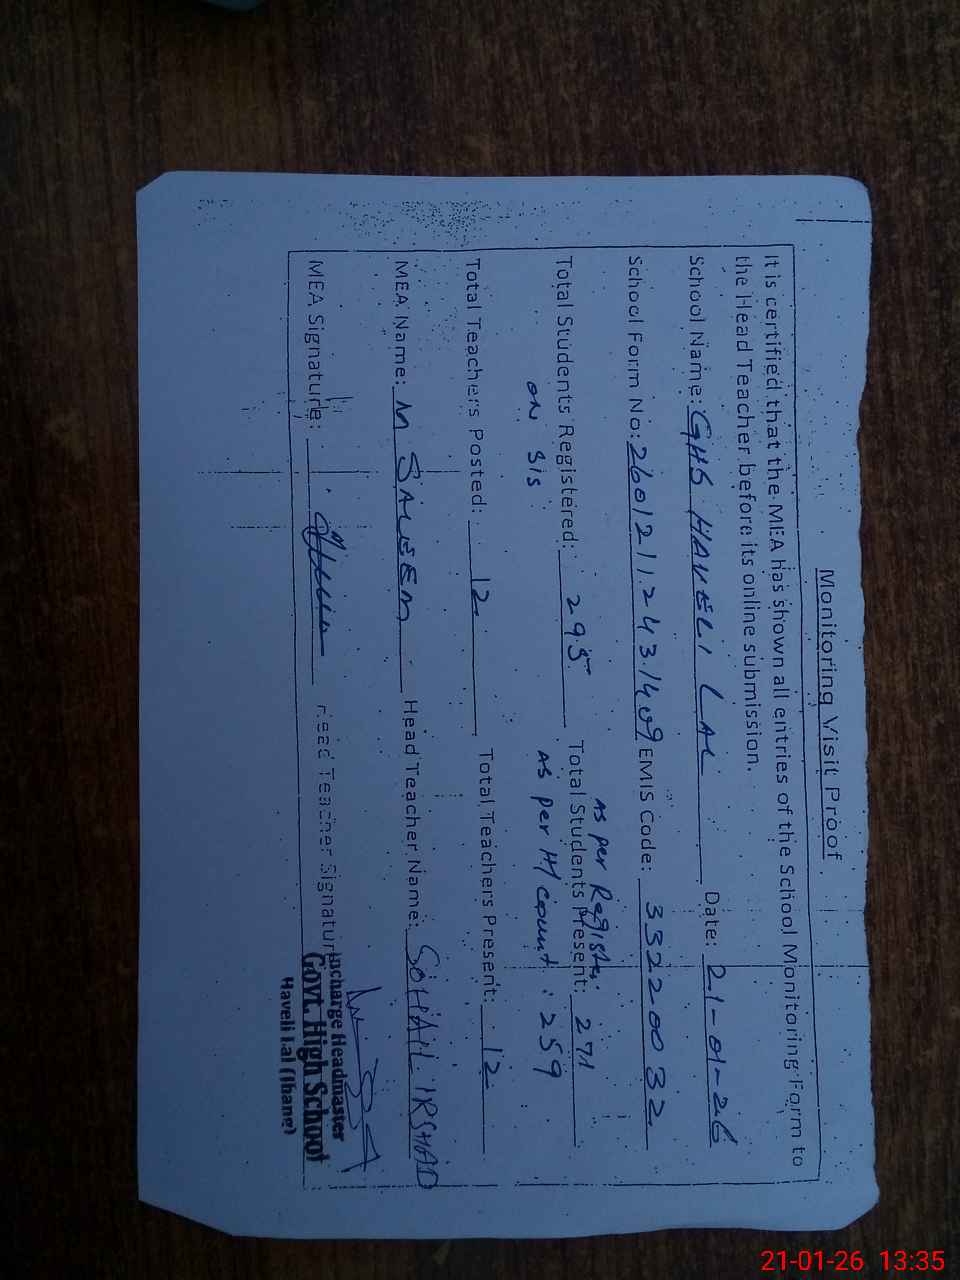 Monitoring Visit Proof
It is certified that the MEA has shown all entries of the School Monitoring Form to
the Head Teacher before its online submission.
School Name: GHS HAVELI LAL Date: 21-01-26
School Form No: 26012112431409 EMIS Code: 33220032
as per Register
Total Students Registered: 295 Total Students Present: 271
on Sis as per H/count . 259
Total Teachers Posted: 12 Total Teachers Present: 12
MEA Name: M SALEEM Head Teacher Name: SOHAIL IRSHAD
MEA Signature: Head Teacher Signature
Incharge Headmaster
Govt. High School
Haveli Lal (Jhang)
21-01-26 13:35